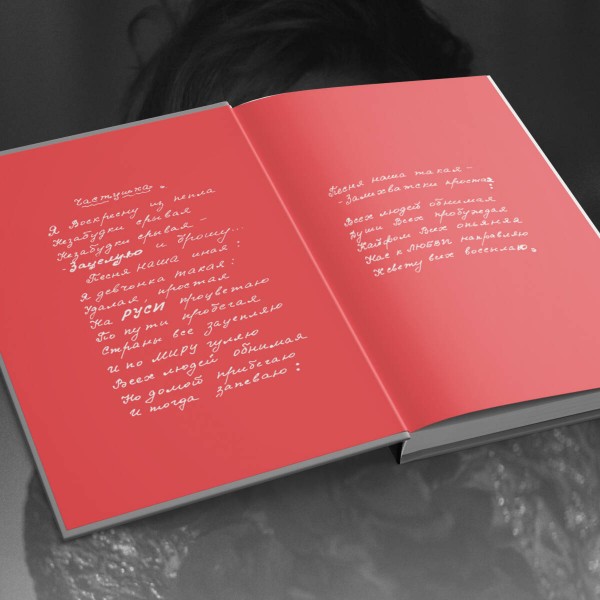 Частушка.
Я Воскресну из пепла
Незабудки срывая
Незабудки срывая –
- Зацелую и брошу...
Песня наша иная:
Я девчонка такая:
Удалая, простая
На РУСИ процветаю
По пути пробегая
Страны все зацепляю
И по МИРУ гуляю
Всех людей обнимая
Но домой прибегаю
И тогда запеваю:
Песня наша такая –
- Залихватски простая:
Всех людей обнимая
Души Всех пробуждая
Кайфом Всех опьяняя
Нас к ЛЮБВИ направляю
К свету всех